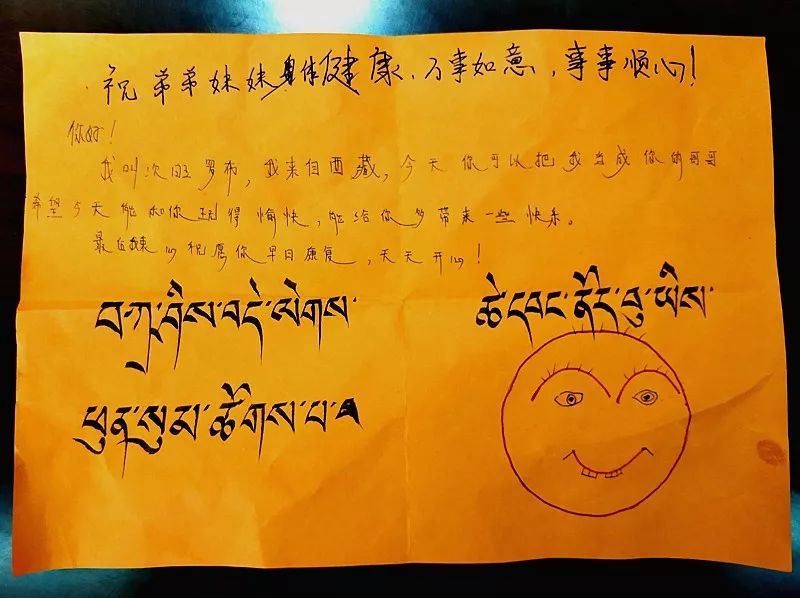 祝弟弟妹妹身体健康、万事如意,事事顺心!
你好!
我叫次旺罗布,我来自西藏,今天你可以把我当成你的哥哥
希望今天能和你玩得愉快,能给你多带来一些快乐。
最后我衷心祝愿你早日康复,天天开心!
བཀྲ་ཤིས་བདེ་ལེགས་
ཚེ་དབང་ནོར་བུ་ཡིས་
ཕུན་སུམ་ཚོགས་པ་